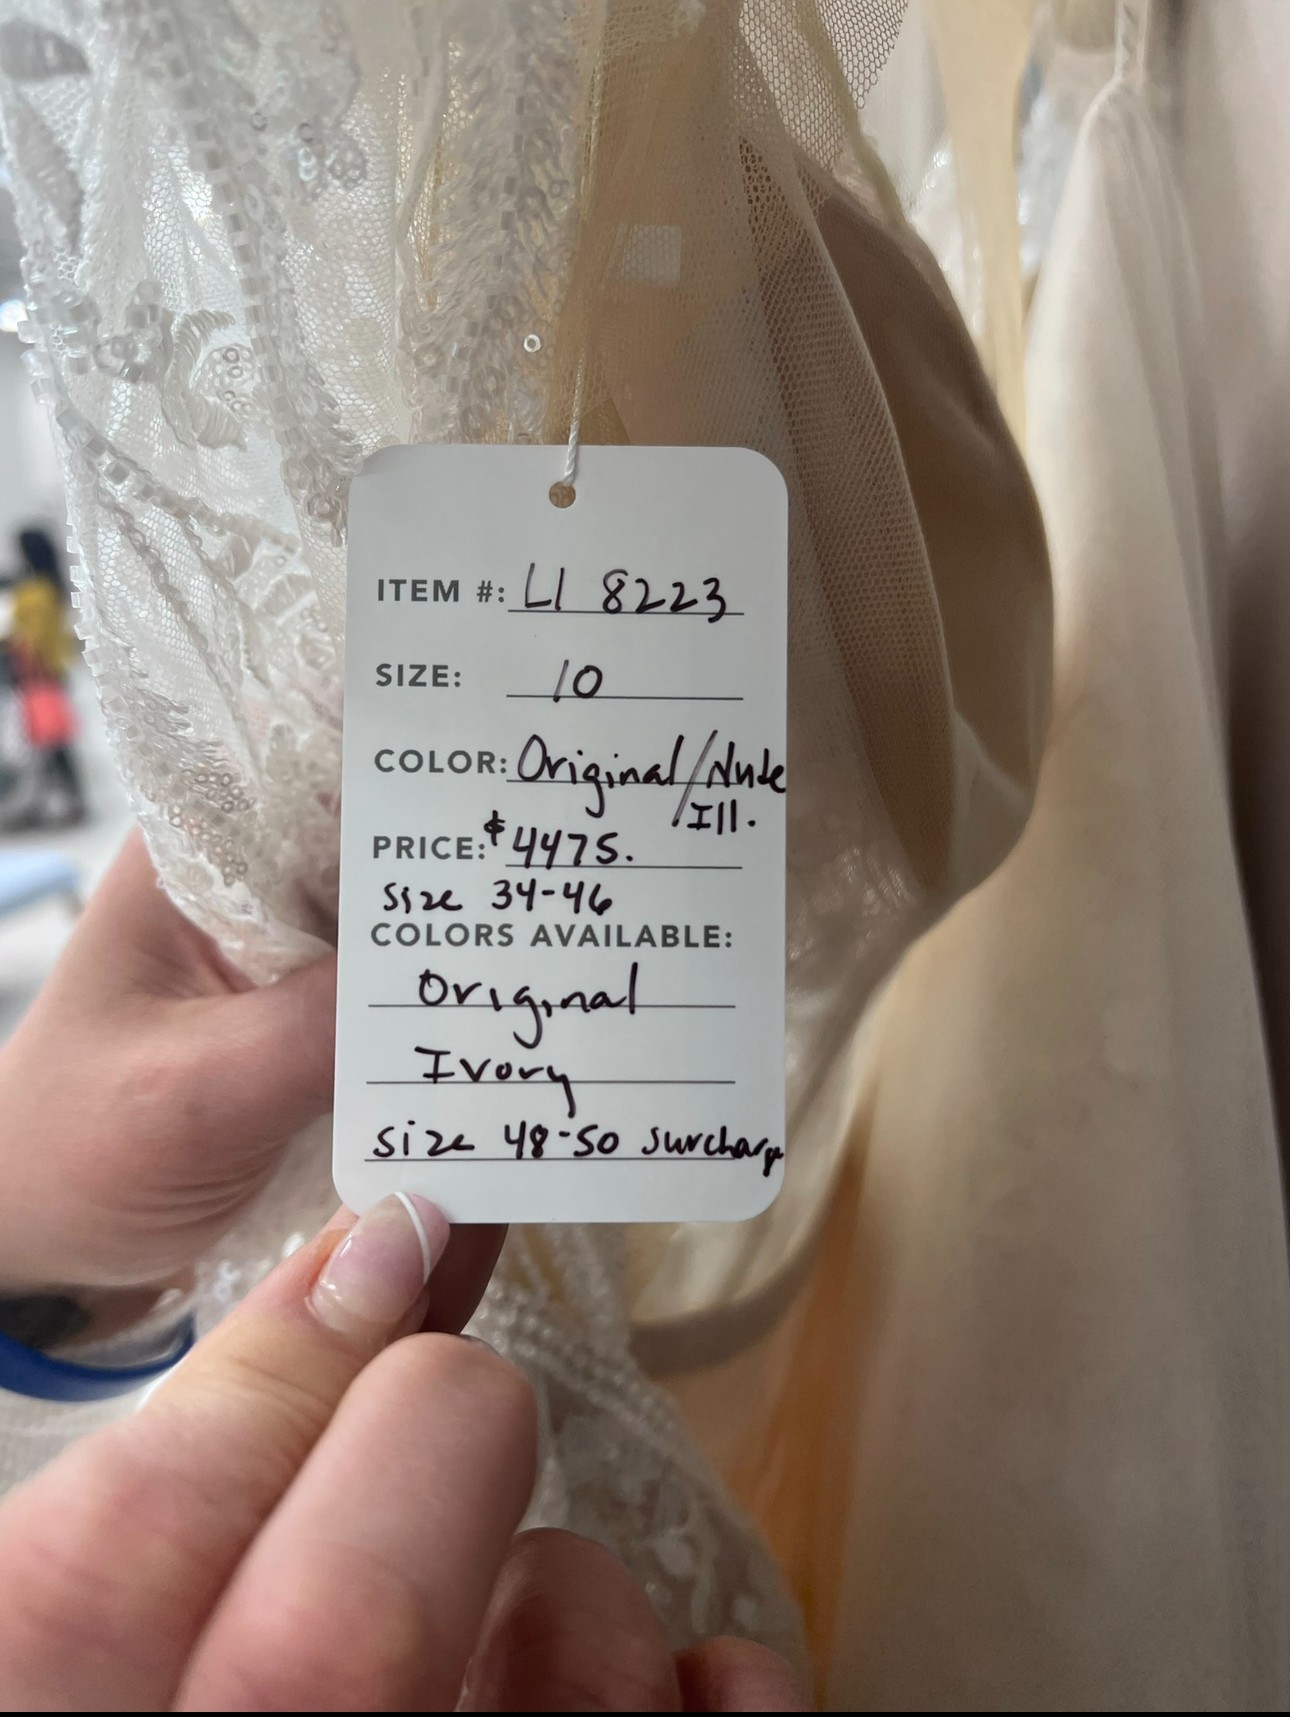 ITEM #: LI 8223
SIZE: 10
COLOR: Original/Nude
Ill.
PRICE: $4475.
Size 34-46
COLORS AVAILABLE:
Original
Ivory
Size 48-50 surcharge